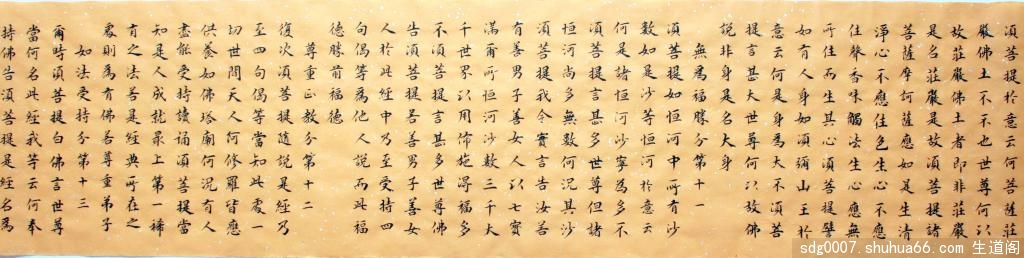 須菩提於意云何菩薩莊
嚴佛土不不也世尊何以
故莊嚴佛土者即非莊嚴
是名莊嚴是故須菩提諸
菩薩摩訶薩應如是生清
淨心不應住色生心不應
住聲香味觸法生心應無
所住而生其心須菩提譬
如有人身如須彌山王於
意云何是身為大不須菩
提言甚大世尊何以故佛
說非身是名大身
無為福勝分第十一
須菩提如恒河中所有沙
數如是沙等恒河於意云
何是諸恒河沙寧為多不
須菩提言甚多世尊但諸
恒河尚多無數何況其沙
須菩提我今實言告汝若
有善男子善女人以七寶
滿爾所恒河沙數三千大
千世界以用佈施得福多
不須菩提言甚多世尊佛
告須菩提若善男子善女
人於此經中乃至受持四
句偈等為他人說而此福
德勝前福德
尊重正教分第十二
復次須菩提隨說是經乃
至四句偈等當知此處一
切世間天人阿修羅皆應
供養如佛塔廟何況有人
盡能受持讀誦須菩提當
知是人成就最上第一稀
有之法若是經典所在之
處則為有佛若尊重弟子
如法受持分第十三
爾時須菩提白佛言世尊
當何名此經我等云何奉
持佛告須菩提是經名為
sdg0007.shuhua66.com 生道阁